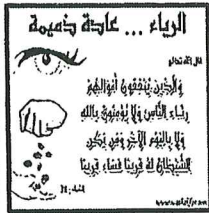 الرياء ... عادة ذميمة
قال الله تعالى
والذين ينفقون أموالهم
رئاء الناس ولا يؤمنون بالله
ولا باليوم الآخر ومن يكن
الشيطان له قرينا فساء قرينا